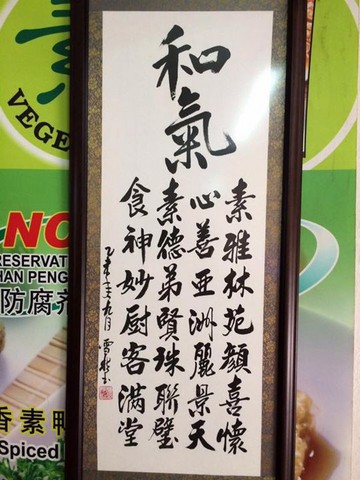 和氣
素雅林苑顏喜懷
心善亞洲麗景天
素德弟賢珠聯璧
食神妙厨客滿堂
九月
VEGE
NO
RESERVAT
HAN PENG
防腐剂
香素鸭
Spiced